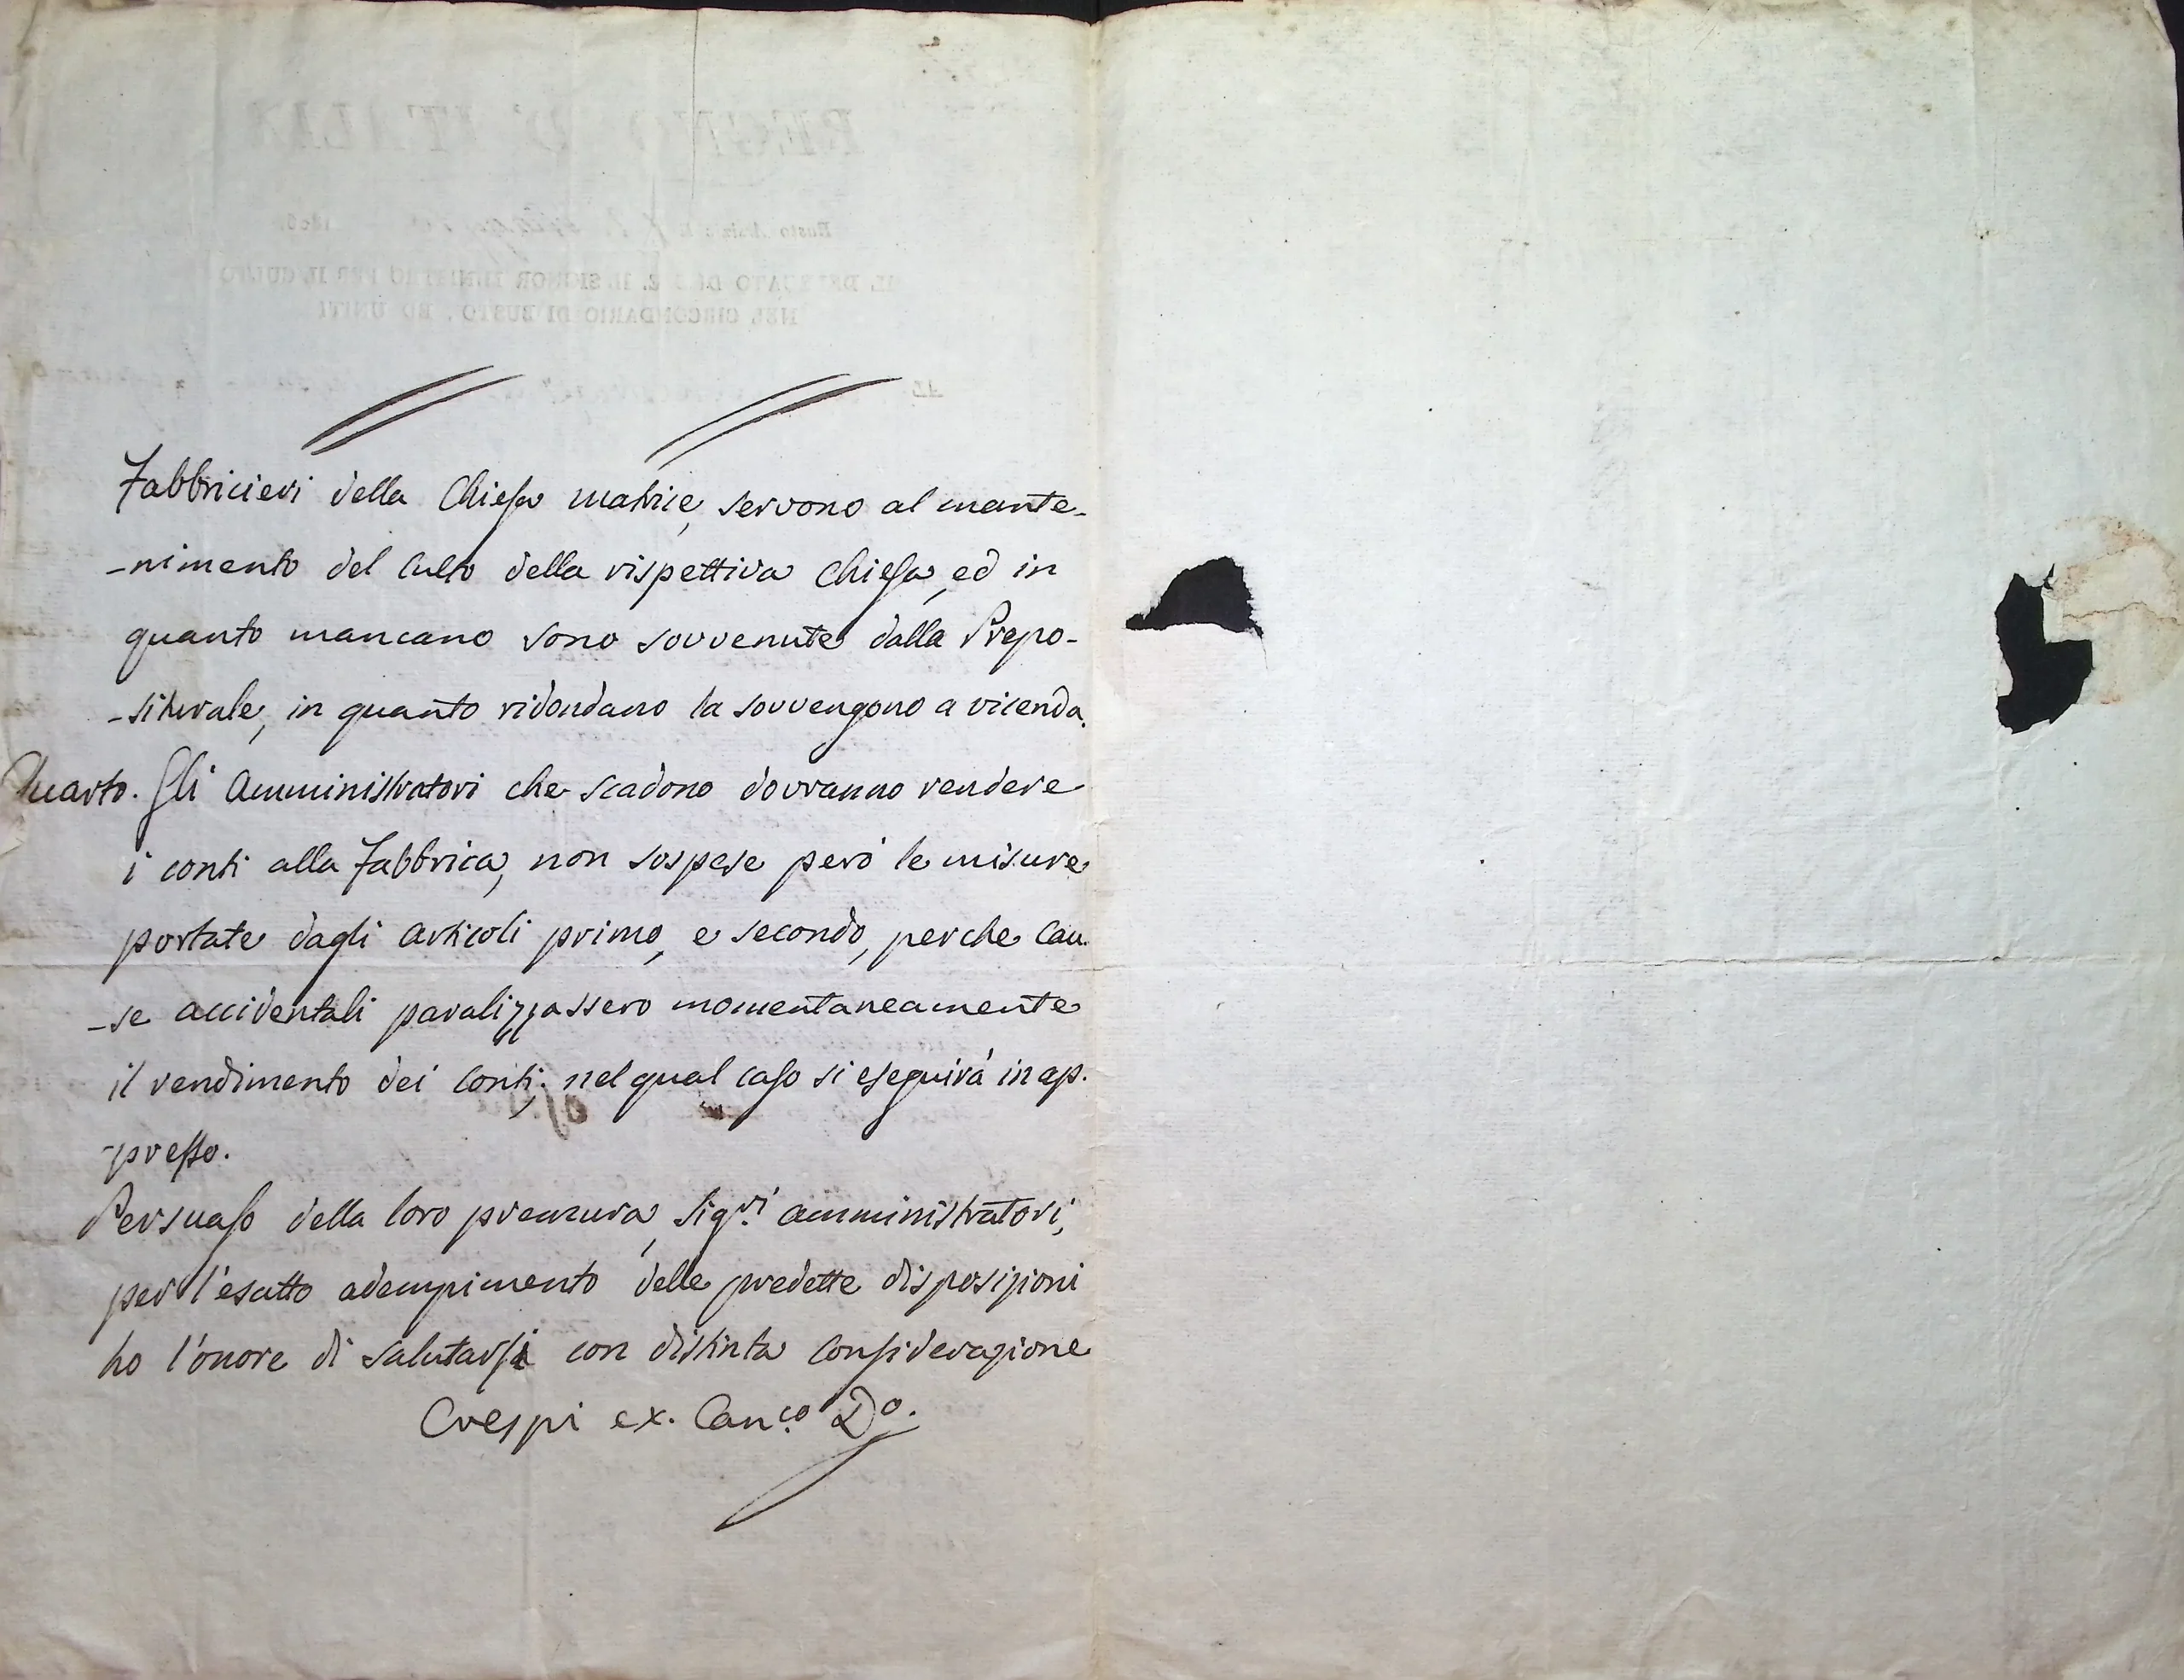 Fabbricieri della Chiesa matrice, servono al mante-
-nimento del Culto della rispettiva Chiesa, ed in
quanto mancano sono sovvenute dalla Prepo-
-siturale, in quanto ridondano la sovvengono a vicenda.
Quarto. Gli Amministratori che scadono dovranno rendere
i conti alla Fabbrica, non sospese però le misure
portate dagli articoli primo, e secondo, perche Cau-
-se accidentali paralizzassero momentaneamente
il rendimento dei Conti; nel qual caso si eseguirà in ap-
-presso.
Persuaso della loro premura, Sig.ri amministratori,
per l'esatto adempimento delle predette disposizioni
ho l'onore di salutarsi con distinta Considerazione
Crespi ex. Can.co D.o